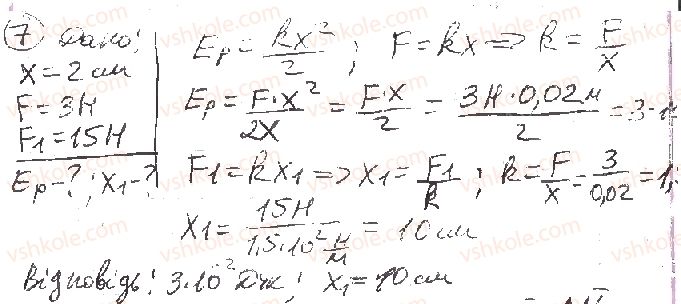 7 Дано:
x = 2 см
F = 3 Н
F₁ = 15 Н
Eₚ - ? ; x₁ - ?
Eₚ = kx²/2 ; F = kx => k = F/x
Eₚ = F·x²/2x = F·x/2 = 3 Н·0,02 м/2 = 3·1
F₁ = kx₁ => x₁ = F₁/k ; k = F/x = 3/0,02 = 1,
x₁ = 15 Н/1,5·10² Н/м = 10 см
Відповідь: 3·10² Дж ; x₁ = 10 см